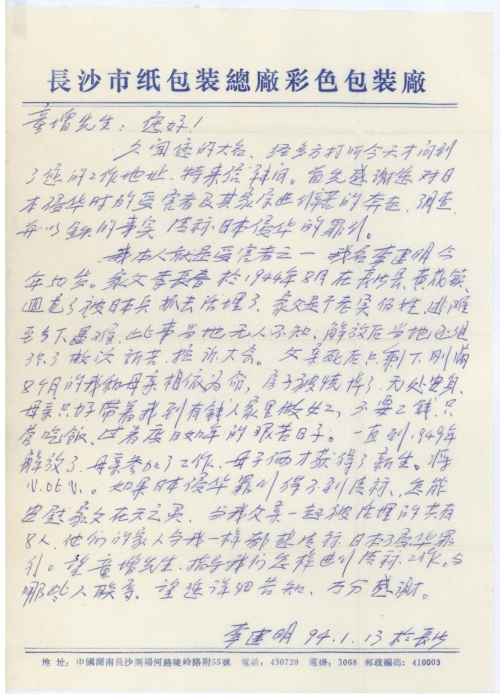 長沙市纸包装總廠彩色包装廠
童增先生：您好！
久闻您的大名，经多方打听今天才问到
了您的工作地址，特来信拜问。首先感谢您对日
本侵华时的受害者及其家庭进行的奔走，调查
并以铁的事实 索赔日本侵华的罪行。
我本人就是受害者之一 我名李建明今
年50岁。家父李长春於1944年8月在長沙县黄花镇
回老了被日本兵抓去活埋了，家父是个老实伯性，逃难
至乡下遇难，此事当地无人不知，解放后当地还组
织了几次诉苦、控诉大会。父亲死后只剩下刚满
8个月的我和母亲相依为命，房子被烧掉了，无处安身，
母亲只好带着我到有錢人家里做女工，不要工钱只
管吃饭，过着度日如年的艰苦日子。一直到1949年
解放了，母亲参加了工作，母子俩才获得了新生。将
心比心。如果日本侵华罪行得不到索赔，怎能
安慰家父在天之灵，与我父亲一起被活埋的共有
8人，他们的家人与我一样都想索赔日本侵华罪
行。望童增先生，指导我们怎样进行索赔工作。与
哪些人联系，望您详细告知，万分感谢。
李建明 94.1.13於長沙
地址：中國湖南長沙瀏陽河路陡岭路附55號 電話：430729 電掛：3068 郵政編碼：410003